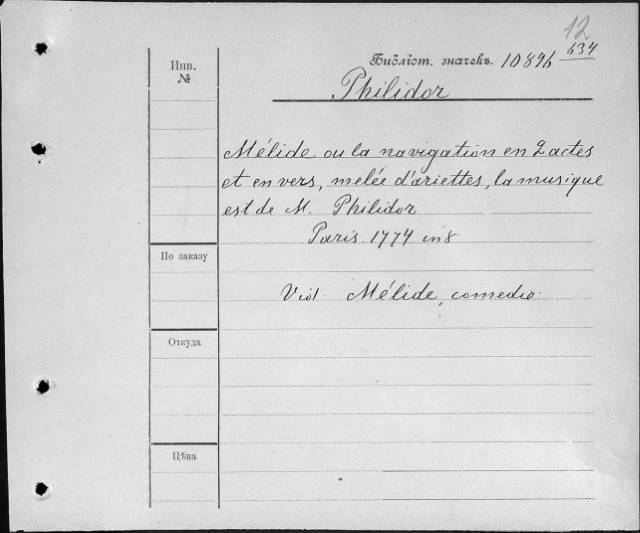 12
Инв. №
Библіот. значекъ. 10896 634
Philidor
Mélide ou la navigation en 2 actes
et en vers, melée d'ariettes, la musique
est de M. Philidor
Paris 1774 in 8
По заказу
Vid. Mélide, comedie
Откуда
Цѣна